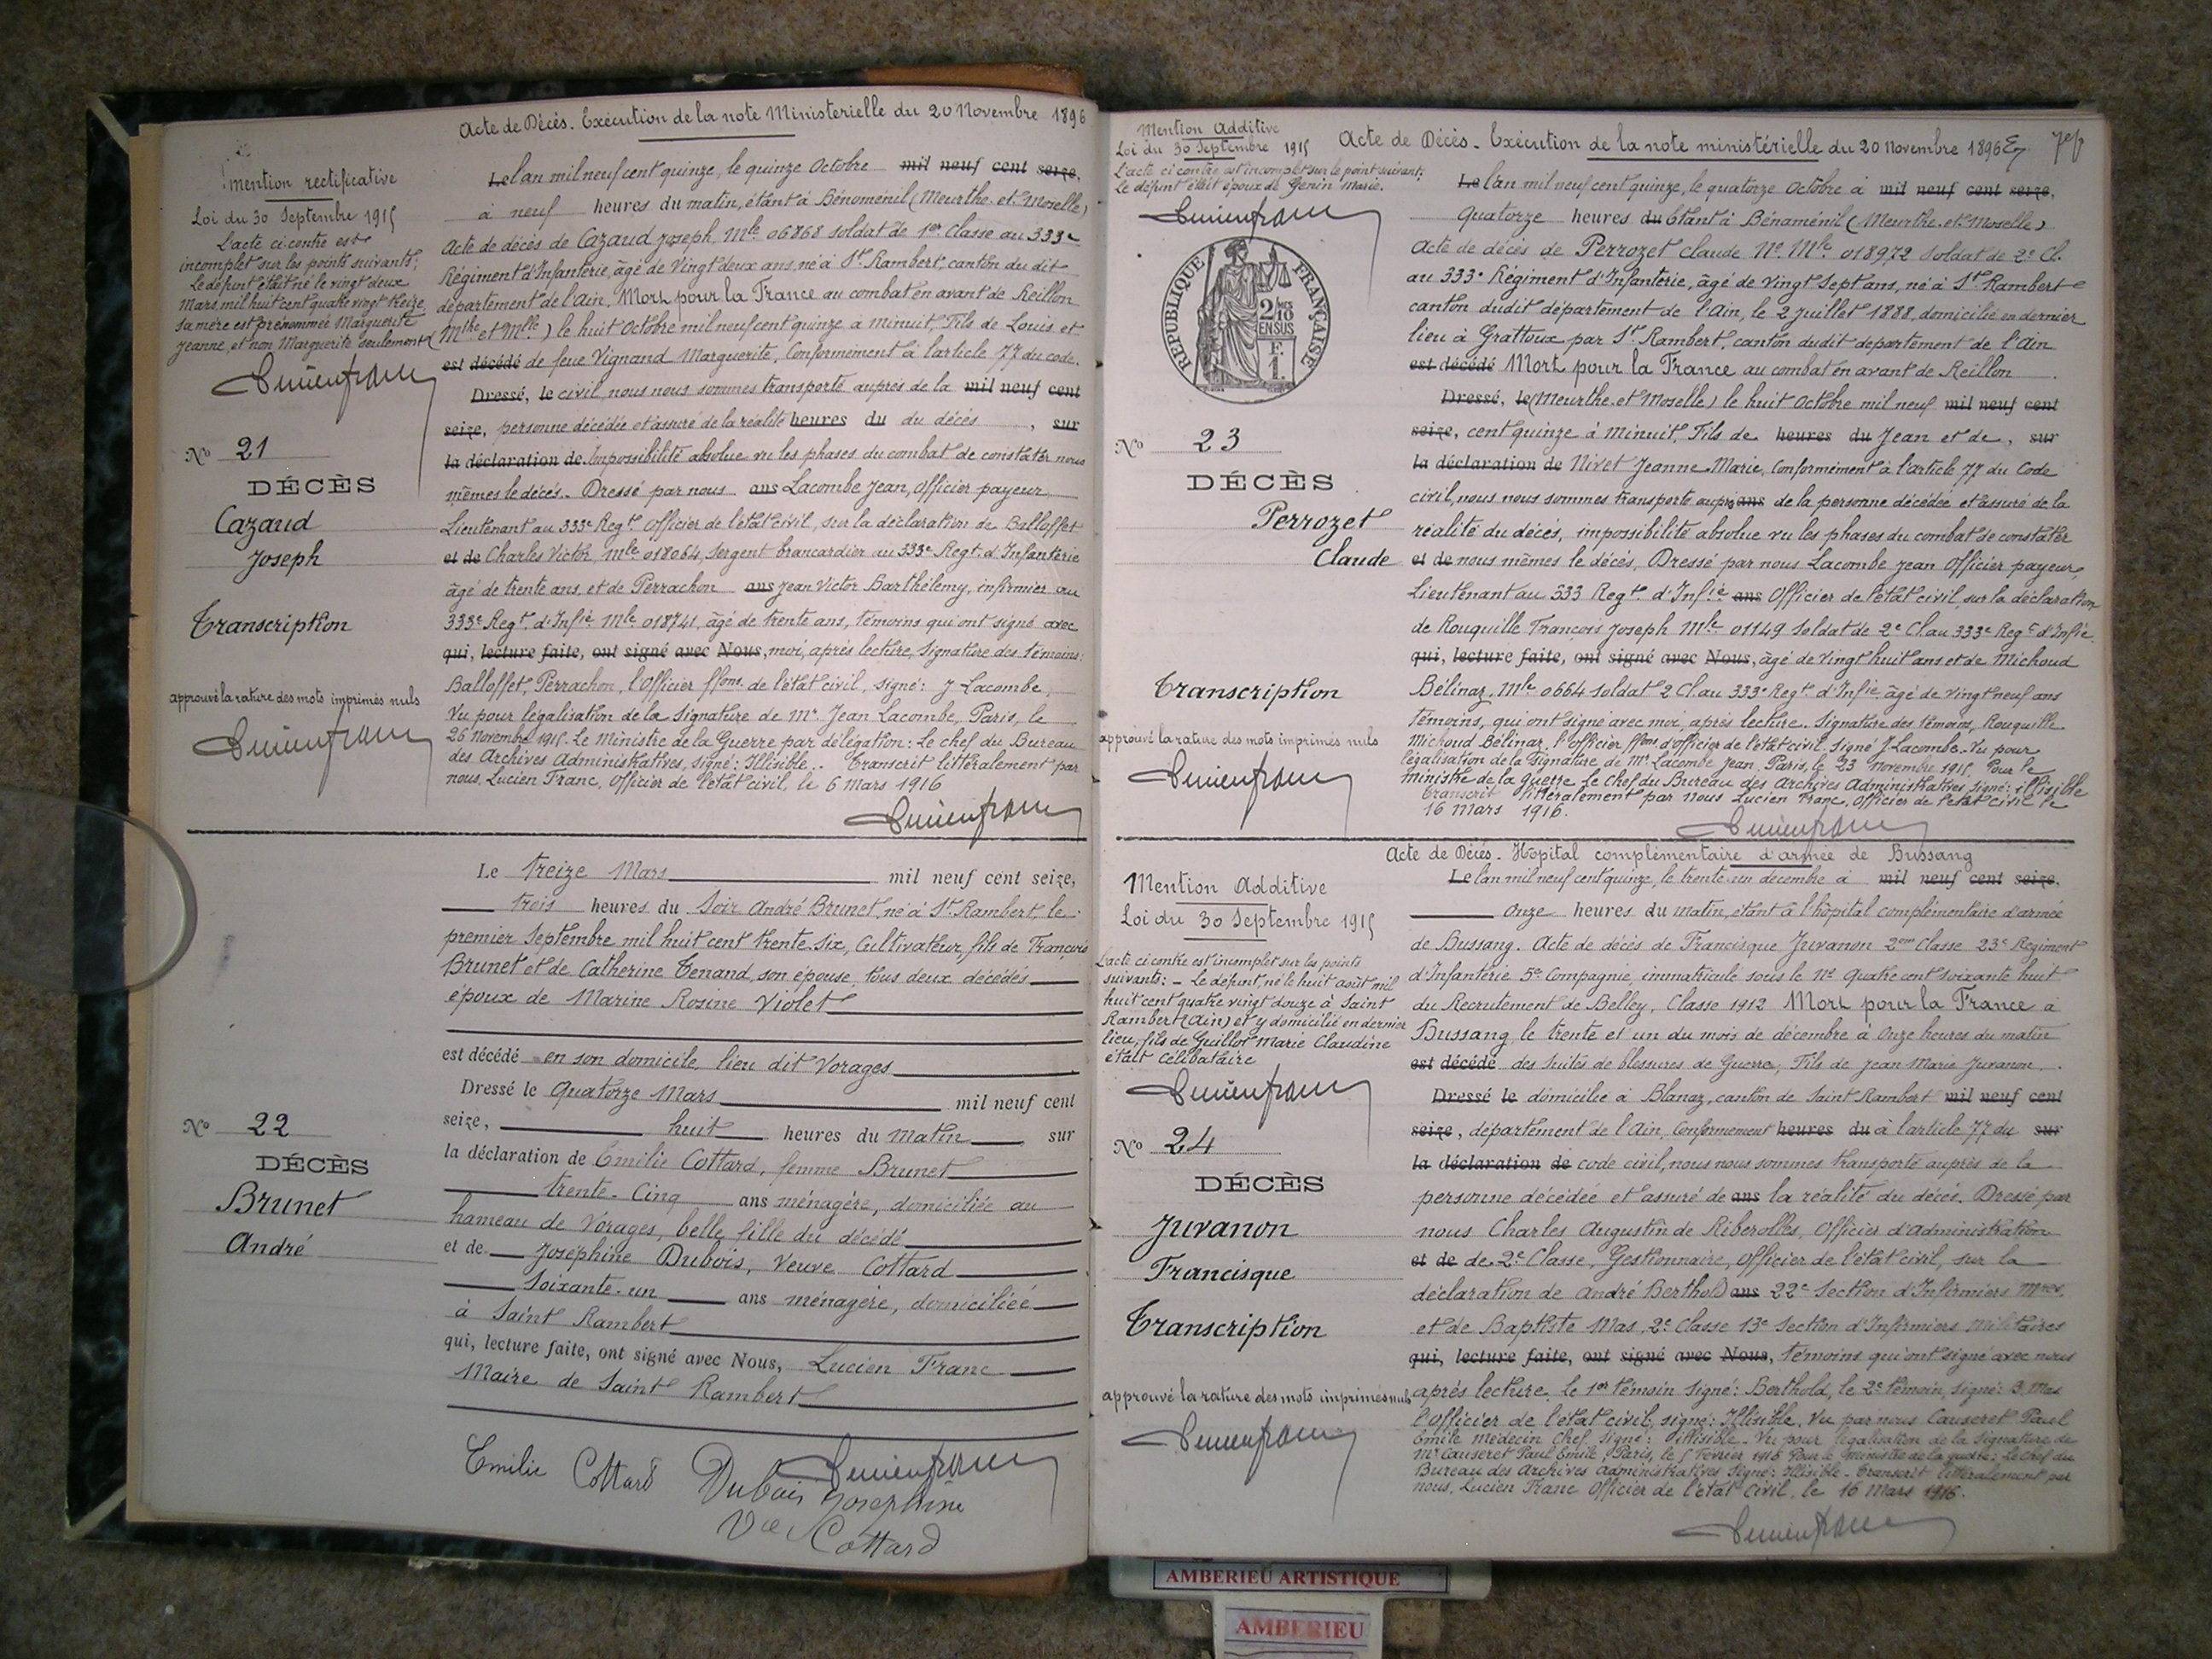 Acte de Décès. Exécution de la note Ministerielle du 20 Novembre 1896
mention rectificative
Loi du 30 Septembre 1915
L'acte ci contre est
incomplet sur les points suivants;
Le défunt était né le vingt deux
Mars mil huit cent quatre vingt treize
sa mère est prénommée Marguerite
Jeanne, et non Marguerite seulement
Lucien Franc
N° 21
DÉCÈS
Cazaud
Joseph
Transcription
approuvé la rature des mots imprimés nuls
Lucien Franc
Le l'an mil neuf cent quinze, le quinze Octobre mil neuf cent seize,
à neuf heures du matin, étant à Bénoménil (Meurthe et Moselle)
Acte de décès de Cazaud Joseph, Mle 06868 soldat de 1er Classe au 333e
Régiment d'Infanterie, âgé de Vingt deux ans, né à St Rambert, canton du dit
département de l'Ain, Mort pour la France au combat en avant de Reillon
(Mthe et Mlle) le huit Octobre mil neuf cent quinze à minuit, Fils de Louis et
est décédé de feue Vignand Marguerite, Conformément à l'article 77 du code.
Dressé, le civil, nous nous sommes transporté auprès de la mil neuf cent
seize, personne décédée et assuré de la réalité heures du du décès , sur
la déclaration de Impossibilité absolue vu les phases du combat de constater nous
mêmes le décès. Dressé par nous ans Lacombe Jean, Officier payeur
Lieutenant au 333e Regt. Officier de l'état civil, sur la déclaration de Balloffet
et de Charles Victor, Mle 018064, Sergent brancardier au 333e Regt d'Infanterie
âgé de trente ans, et de Perrachon ans Jean Victor Barthélemy, infirmier au
333e Regt. d'Infie Mle 018741, âgé de trente ans, témoins qui ont signé avec
qui, lecture faite, ont signé avec Nous, moi, après lecture, Signature des témoins:
Balloffet, Perrachon, l'Officier ffons. de l'état civil, signé: J Lacombe,
Vu pour légalisation de la Signature de Mr Jean Lacombe, Paris, le
26 Novembre 1915. Le Ministre de la Guerre par délégation: Le chef du Bureau
des Archives Administratives, signé: Illisible. Transcrit littéralement par
nous, Lucien Franc, Officier de l'état civil, le 6 Mars 1916
Lucien Franc
N° 22
DÉCÈS
Brunet
André
Le treize Mars mil neuf cent seize,
trois heures du Soir André Brunet, né à St Rambert, le
premier Septembre mil huit cent trente-six, Cultivateur, fils de François
Brunet et de Catherine Tenand, son épouse, tous deux décédés
époux de Marine Rosine Violet
est décédé en son domicile, lieu dit Vorages
Dressé le Quatorze Mars mil neuf cent
seize, huit heures du Matin , sur
la déclaration de Emilie Cottard, femme Brunet
trente-Cinq ans ménagère, domiciliée au
hameau de Vorages, belle fille du décédé
et de Joséphine Dubois, Veuve Cottard
Soixante-un ans ménagère, domiciliée
à Saint Rambert
qui, lecture faite, ont signé avec Nous, Lucien Franc
Maire de Saint Rambert
Emilie Cottard Dubois Lucien Franc
Joséphine
Vve Cottard
Mention Additive
Loi du 30 Septembre 1915
L'acte ci contre est incomplet sur le point suivant:
Le défunt était époux de Genin Marie.
Lucien Franc
RÉPUBLIQUE FRANÇAISE
2/10
EN SUS
F.
1.
N° 23
DÉCÈS
Perrozet
Claude
Transcription
approuvé la rature des mots imprimés nuls
Lucien Franc
Acte de Décès. Exécution de la note ministérielle du 20 novembre 1896
Le l'an mil neuf cent quinze, le quatorze Octobre à mil neuf cent seize,
Quatorze heures du étant à Bénaménil (Meurthe et Moselle)
Acte de décès de Perrozet Claude No Mle 018972 Soldat de 2e Cl.
au 333e Régiment d'Infanterie, âgé de Vingt Sept ans, né à St Rambert
canton dudit département de l'Ain, le 2 Juillet 1888, domicilié en dernier
lieu à Grattoux par St Rambert, canton dudit département de l'Ain
est décédé Mort pour la France au combat en avant de Reillon
Dressé, le (Meurthe et Moselle) le huit Octobre mil neuf mil neuf cent
seize, cent quinze à minuit, Fils de heures du Jean et de , sur
la déclaration de Nivet Jeanne Marie, Conformément à l'article 77 du Code
civil, nous nous sommes transporté auprès ans de la personne décédée et assuré de la
réalité du décès, impossibilité absolue vu les phases du combat de constater
et de nous mêmes le décès, Dressé par nous Lacombe Jean Officier payeur,
Lieutenant au 333 Regt. d'Infie ans Officier de l'état civil, sur la déclaration
de Rouquille François Joseph Mle 01149 Soldat de 2e Cl. au 333e Regt d'Infie
qui, lecture faite, ont signé avec Nous, âgé de Vingt huit ans et de Michoud
Bélinaz, Mle 0664 Soldat 2 Cl. au 333e Regt d'Infie âgé de vingt neuf ans
témoins, qui ont signé avec moi, après lecture. Signature des témoins, Rouquille
Michoud Bélinaz, l'officier ffons d'officier de l'état civil. Signé J Lacombe. Vu pour
légalisation de la Signature de Mr Lacombe Jean, Paris, le 23 novembre 1915. Pour le
ministre de la guerre. Le chef du Bureau des Archives Administratives, Signé: illisible
Transcrit littéralement par nous Lucien Franc, Officier de l'état civil le
16 Mars 1916.
Lucien Franc
Mention Additive
Loi du 30 Septembre 1915
L'acte ci contre est incomplet sur les points
suivants: - Le défunt, né le huit août mil
huit cent quatre vingt douze à Saint
Rambert (Ain) et y domicilié en dernier
lieu, fils de Guillot Marie Claudine
était célibataire
Lucien Franc
N° 24
DÉCÈS
Juvanon
Francisque
Transcription
approuvé la rature des mots imprimés nuls
Lucien Franc
Acte de Décès. Hôpital complémentaire d'armée de Bussang
Le l'an mil neuf cent quinze, le trente un décembre à mil neuf cent seize,
Onze heures du matin, étant à l'hôpital complémentaire d'armée
de Bussang. Acte de décès de Francisque Juvanon 2eme Classe 23e Régiment
d'Infanterie 5e Compagnie, immatriculé sous le No Quatre cent soixante huit
du Recrutement de Belley, Classe 1912 Mort pour la France à
Bussang, le trente et un du mois de décembre à Onze heures du matin
est décédé des Suites de blessures de Guerre, Fils de Jean Marie Juvanon.
Dressé le domicilié à Blanaz, canton de Saint Rambert mil neuf cent
seize, département de l'Ain, Conformément heures du à l'article 77 du sur
la déclaration de code civil, nous nous sommes transporté auprès de la
personne décédée et assuré de ans la réalité du décès. Dressé par
nous Charles Augustin de Riberolles, Officier d'Administration
et de de 2e Classe, Gestionnaire, Officier de l'état civil, sur la
déclaration de André Berthold ans 22e Section d'Infirmiers Mres,
et de Baptiste Mas, 2e Classe 13e Section d'Infirmiers Militaires
qui, lecture faite, ont signé avec Nous, témoins qui ont signé avec nous
après lecture. Le 1er témoin Signé: Berthold, le 2e témoin, signé: B. Mas
l'Officier de l'état civil, signé: Illisible. Vu par nous Causeret Paul
Emile médecin Chef, signé: illisible. Vu pour légalisation de la Signature de
Mr Causeret Paul Emile, Paris, le 5 Février 1916 Pour le Ministre de la guerre: Le Chef du
Bureau des Archives Administratives Signé: Illisible. Transcrit littéralement par
nous, Lucien Franc Officier de l'état Civil, le 16 Mars 1916.
Lucien Franc
AMBERIEU ARTISTIQUE
AMBERIEU